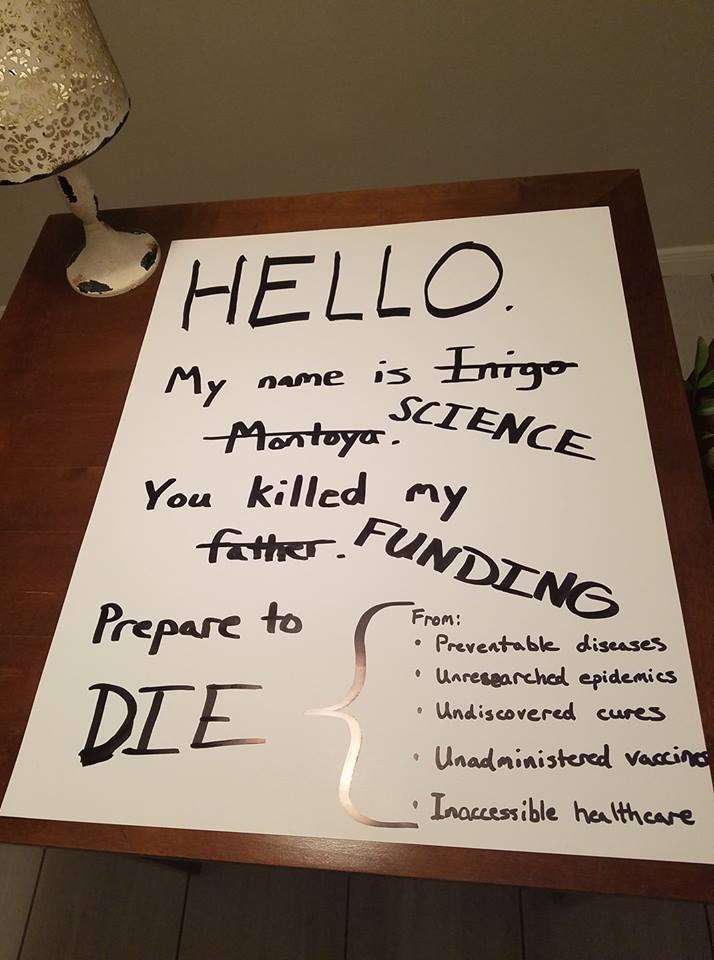 HELLO.
My name is Inigo
Montoya. SCIENCE
You killed my
father. FUNDING
Prepare to
DIE
From:
• Preventable diseases
• Unresearched epidemics
• Undiscovered cures
• Unadministered vaccines
• Inaccessible healthcare